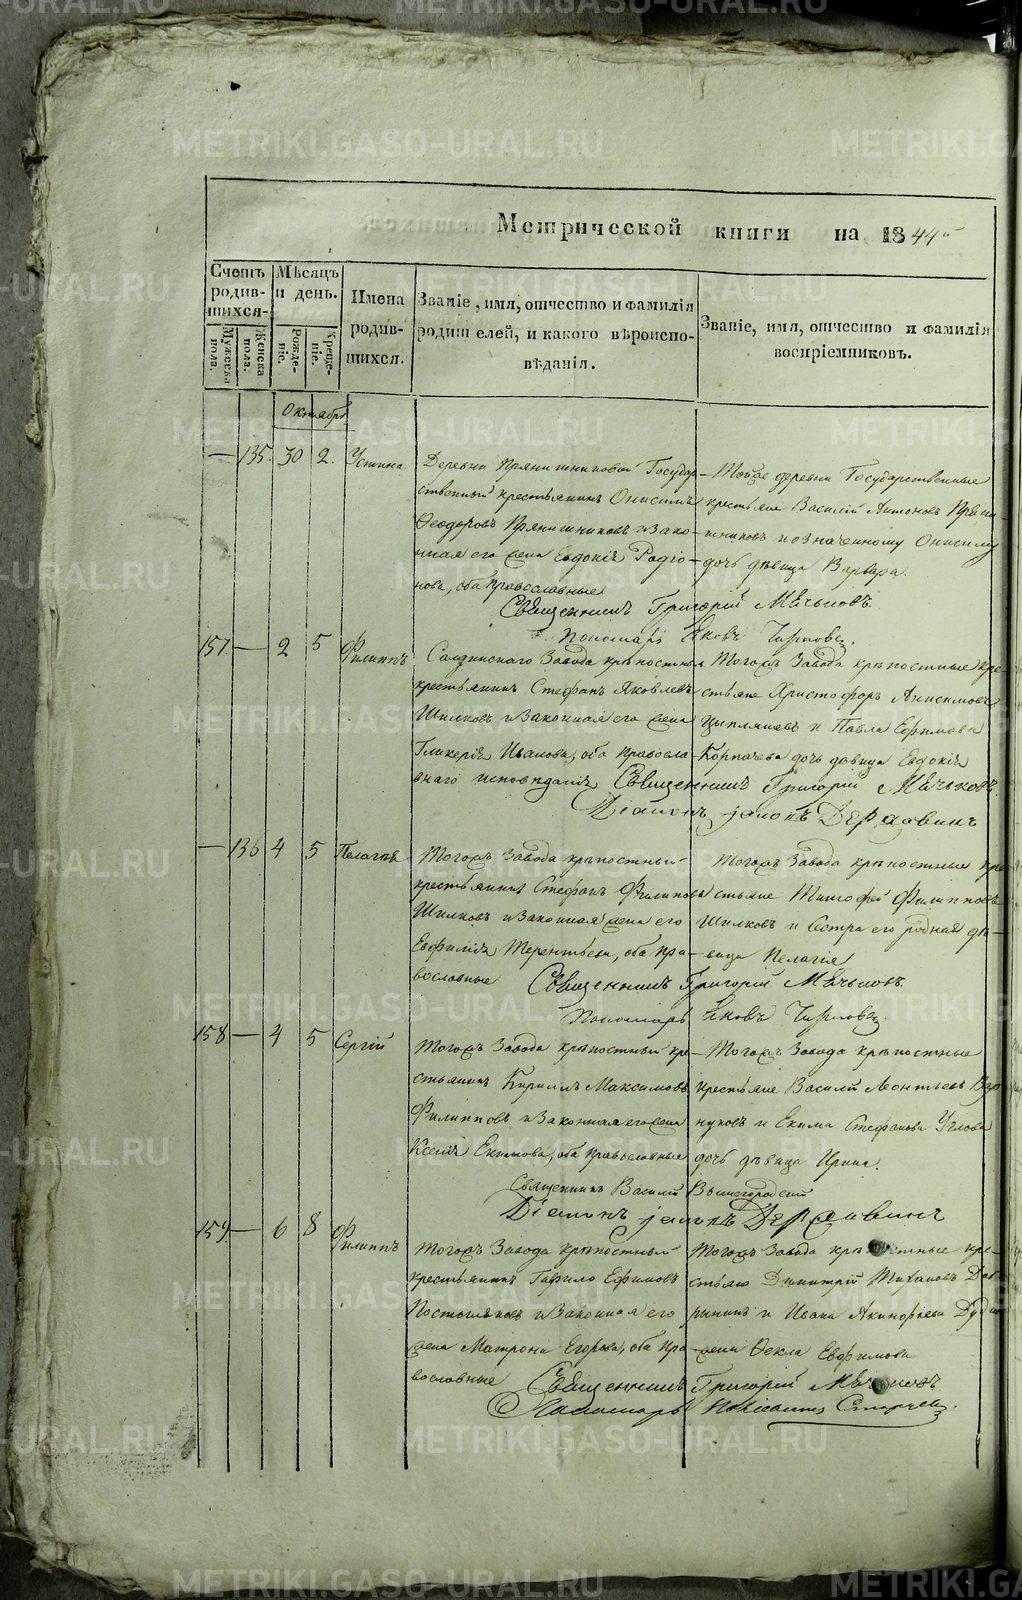 METRIKI.GASO-URAL.RU
Метрической книги на 1844й
Счетъ родившихся.
Мужеска пола.
Женска пола.
Мѣсяцъ и день.
Рожденіе.
Крещеніе.
Имена родившихся.
Званіе, имя, отчество и фамилія родителей, и какого вѣроисповѣданія.
Званіе, имя, отчество и фамилія воспріемниковъ.
Октябрь
— 135. 30 2. Устина
Деревни Прянишниковой Государ-
ственный крестьянинъ Онисимъ
Ѳеодоровъ Прянишниковъ и Зако-
нная его жена Евдокія Родіо-
нова, оба православные
Тойже деревни Государственные
крестьяне Василій Антоновъ Пряни
шниковъ и означенному Онисиму
дочь дѣвица Варвара.
Священникъ Григорій Мѣньковъ.
Пономарь Яковъ
157. — 2 5 Филиппъ
Салдинскаго Завода крѣпостный
крестьянинъ Стефанъ Яковлевъ
Шилковъ и Законная его жена
Гликерія Иванова, оба правосла-
внаго исповѣданія
Тогожъ Завода крѣпостные кре-
стьяне Христофоръ Анисимовъ
Цыпляевъ и Павла Ефимова
Корпачева дочь дѣвица Евдокія
Священникъ Григорій Мѣньковъ.
Діаконъ Іаковъ Державинъ
— 136 4 5 Пелагія
Тогожъ Завода крѣпостный
крестьянинъ Стефанъ Филиповъ
Шилковъ и Законная жена его
Евфимія Терентьева, оба пра-
вославные
Тогожъ Завода крѣпостные кре
стьяне Тимофей Филипповъ
Шилковъ и Сестра его родная дѣ-
вица Пелагія
Священникъ Григорій Мѣньковъ.
Пономарь Яковъ
158 — 4 5 Сергій
Тогожъ Завода крѣпостный кре-
стьянинъ Кирилъ Максимовъ
Филипповъ и Законная его жена
Ксенія Екимова, оба православные
Тогожъ Завода крѣпостные
крестьяне Василій Леонтьевъ
нуковъ и Екима Стефанова Углова
дочь дѣвица Ирина.
Священникъ Василій Вышегородскій
Діаконъ Іаковъ Державинъ
159. — 6 8 Филиппъ
Тогожъ Завода крѣпостный
крестьянинъ Гаврило Ефимовъ
Постоляковъ и Законная его
жена Матрона Егорова, оба пра-
вославные
Тогожъ Завода крѣпостные кре-
стьяне Димитрій Титановъ Доб
рынинъ и Ивана Акинфіева
жена Ѳекла Евфимова
Священникъ Григорій Мѣньковъ
Пономарь